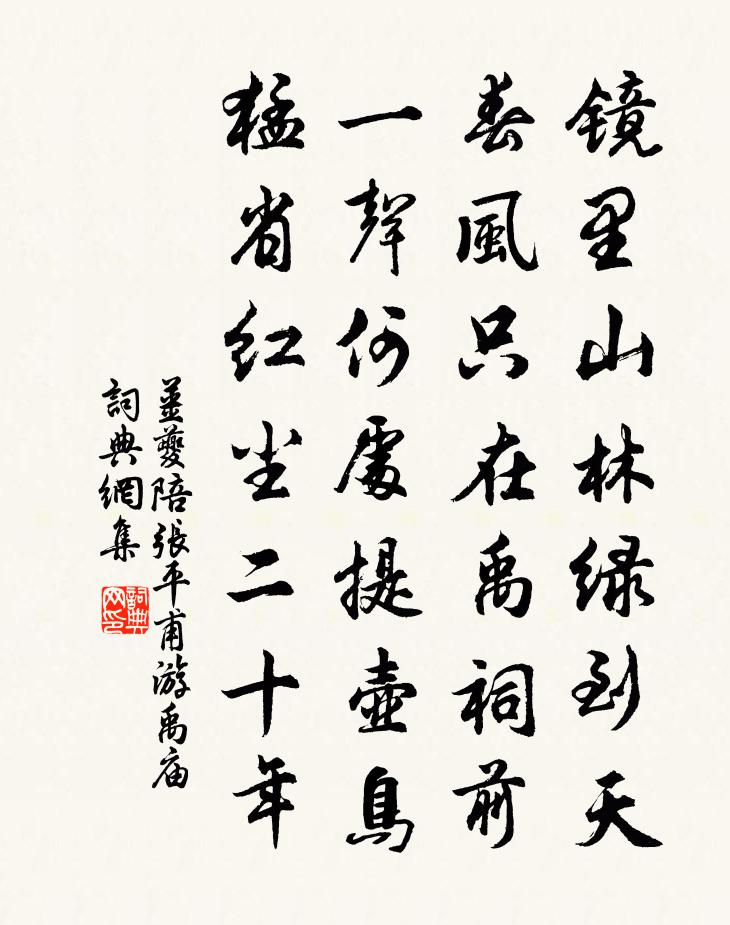 镜里山林绿到天
春風只在禹祠前
一聲何處提壺鳥
猛省红尘二十年
姜夔陪張平甫游禹庙
詞典網集
詞典网印